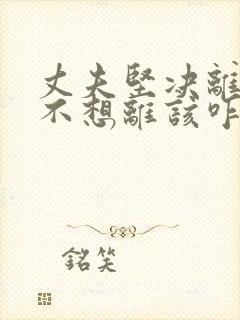 丈夫堅决離
不想離該咋
銘笑